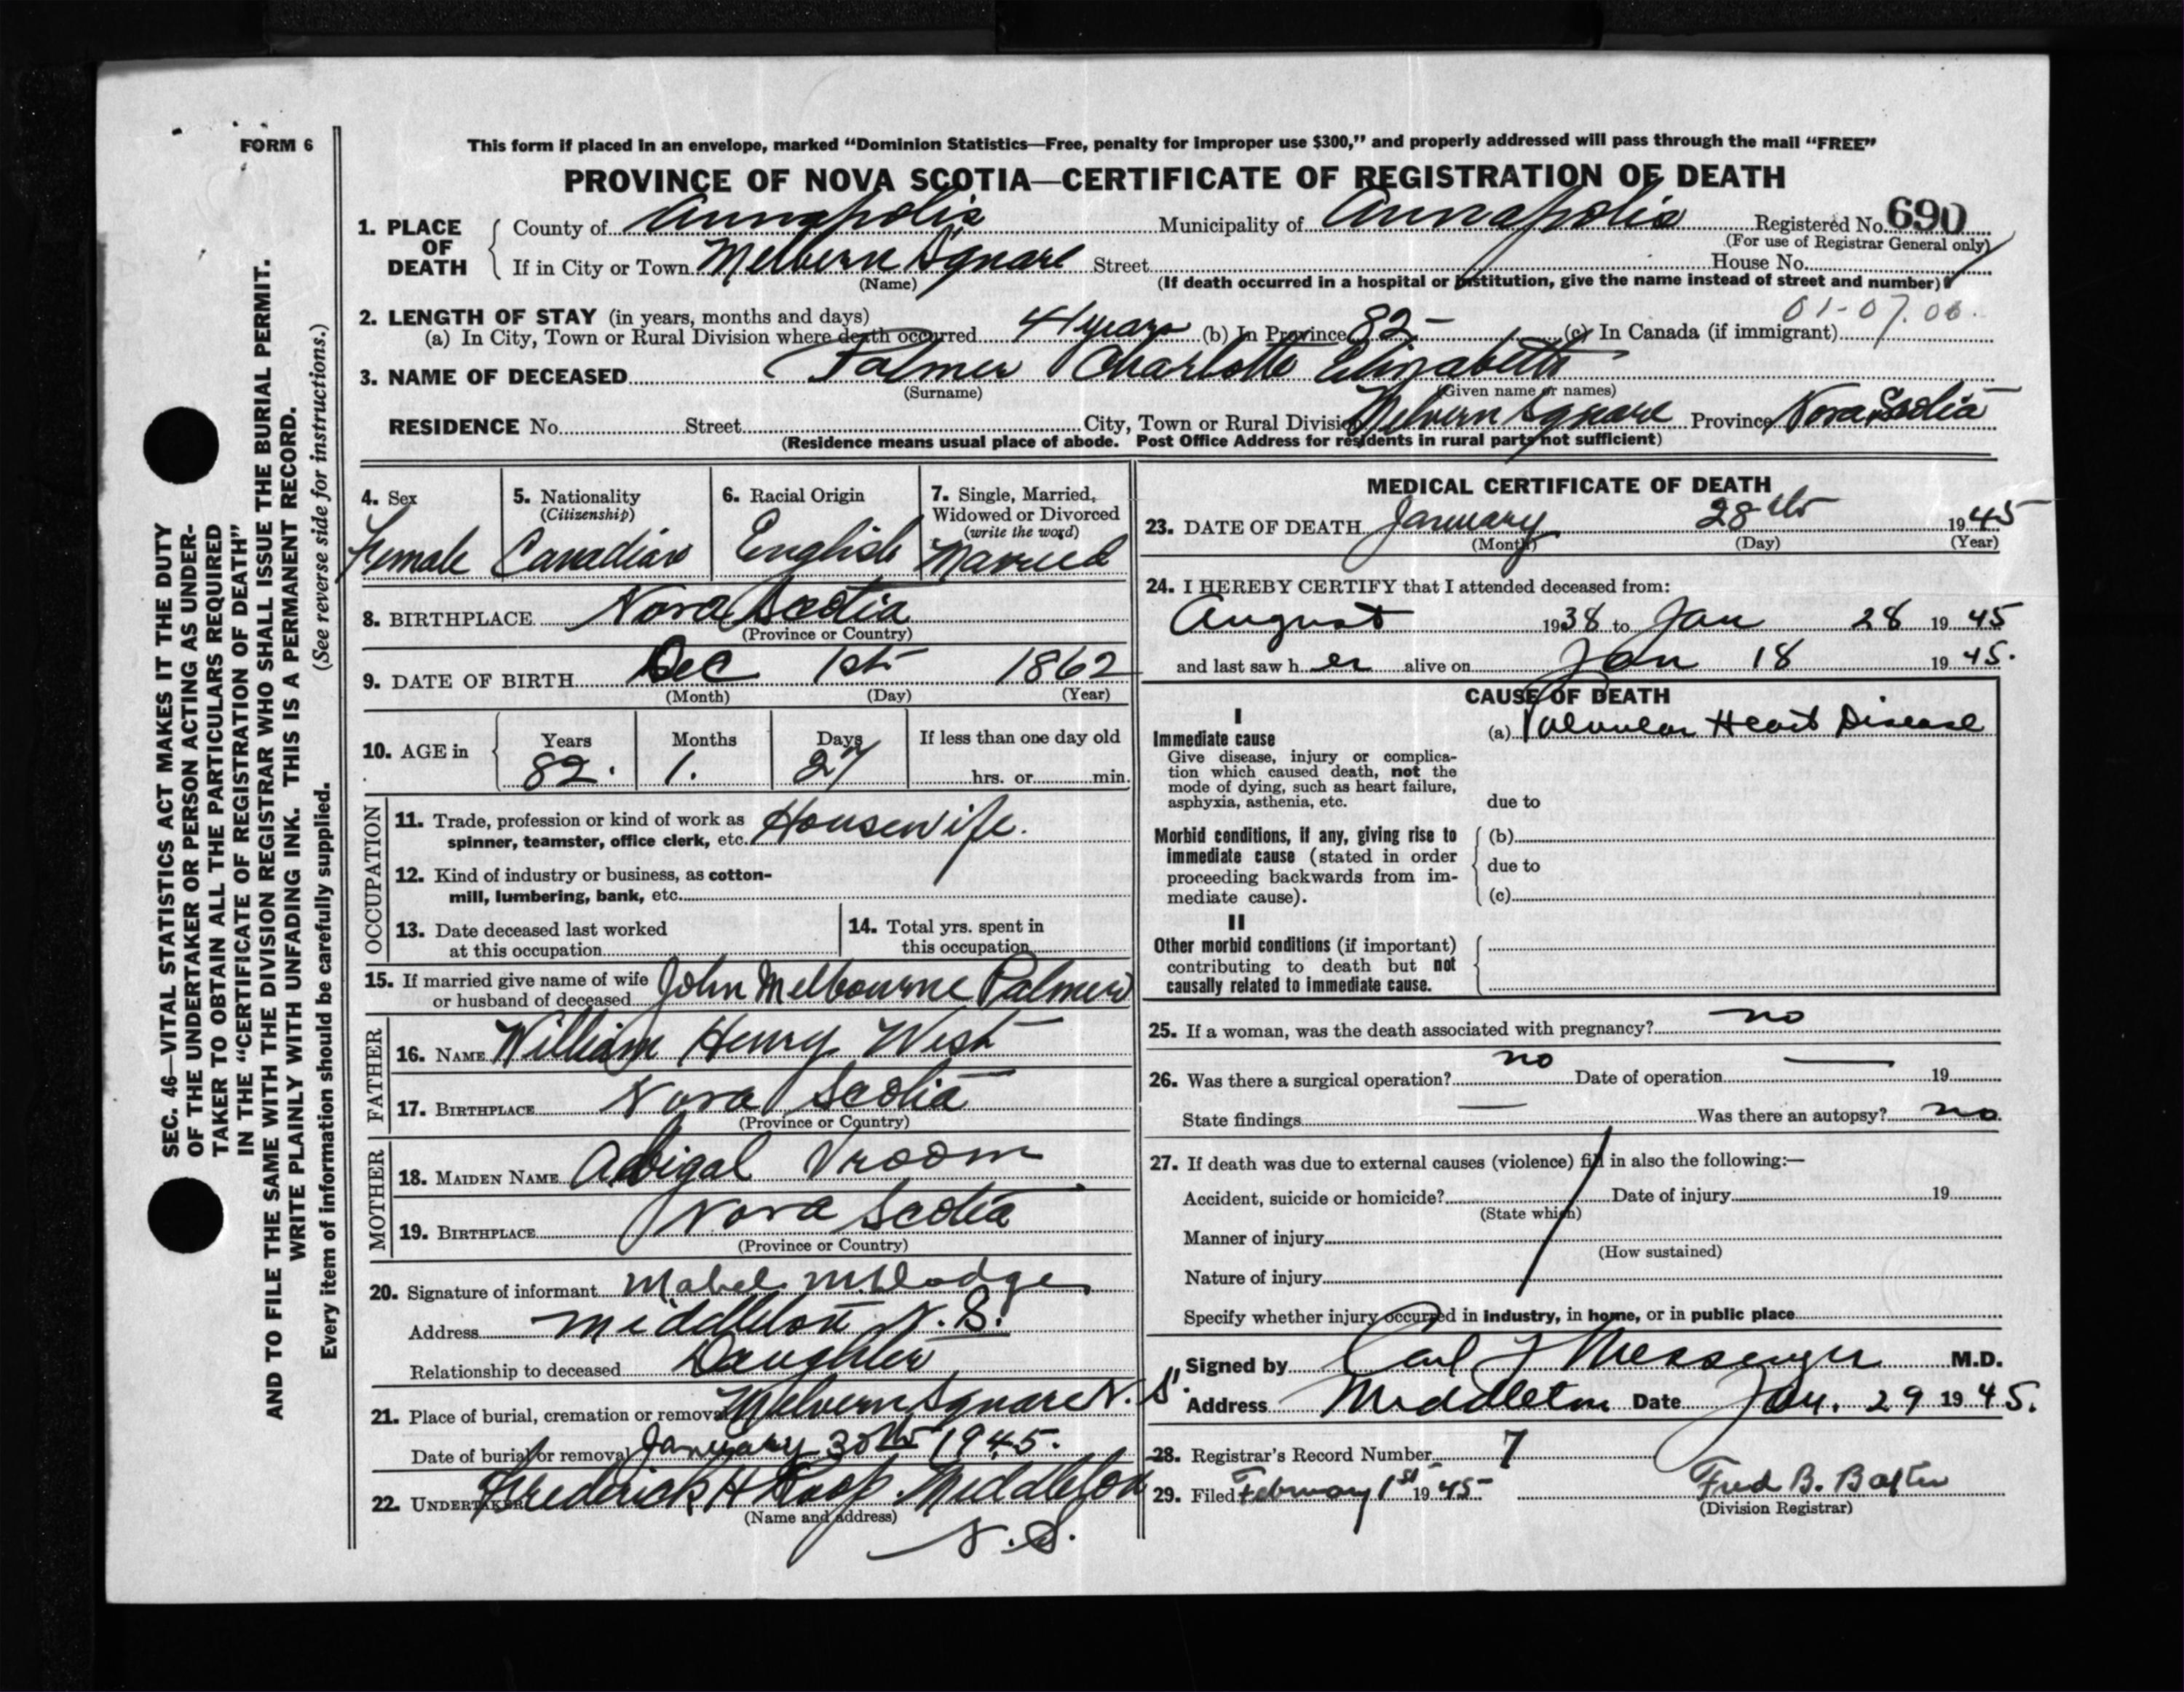 FORM 6
This form if placed in an envelope, marked “Dominion Statistics—Free, penalty for improper use $300,” and properly addressed will pass through the mail “FREE”
PROVINCE OF NOVA SCOTIA—CERTIFICATE OF REGISTRATION OF DEATH
1. PLACE OF DEATH County of Annapolis Municipality of Annapolis Registered No. 690
(For use of Registrar General only)
If in City or Town Melvern Square Street House No.
(Name) (If death occurred in a hospital or institution, give the name instead of street and number)
01-07.00.
2. LENGTH OF STAY (in years, months and days)
(a) In City, Town or Rural Division where death occurred 41 years (b) In Province 82 (c) In Canada (if immigrant)
3. NAME OF DECEASED Palmer Charlotte Elizabeth
(Surname) (Given name or names)
RESIDENCE No. Street City, Town or Rural Division Melvern Square Province Nova Scotia
(Residence means usual place of abode. Post Office Address for residents in rural parts not sufficient)
4. Sex Female
5. Nationality (Citizenship) Canadian
6. Racial Origin English
7. Single, Married, Widowed or Divorced (write the word) Married
8. BIRTHPLACE Nova Scotia
(Province or Country)
9. DATE OF BIRTH Dec 1st 1862
(Month) (Day) (Year)
10. AGE in Years Months Days If less than one day old
82. 1. 27 hrs. or min.
OCCUPATION
11. Trade, profession or kind of work as
spinner, teamster, office clerk, etc. Housewife.
12. Kind of industry or business, as cotton-
mill, lumbering, bank, etc.
13. Date deceased last worked
at this occupation
14. Total yrs. spent in
this occupation
15. If married give name of wife
or husband of deceased John Melbourne Palmer
FATHER
16. NAME William Henry West
17. BIRTHPLACE Nova Scotia
(Province or Country)
MOTHER
18. MAIDEN NAME Abigal Vroom
19. BIRTHPLACE Nova Scotia
(Province or Country)
20. Signature of informant Mabel
Address Middleton N.S.
Relationship to deceased Daughter
21. Place of burial, cremation or removal Melvern Square N.S.
Date of burial or removal January 30th 1945.
22. UNDERTAKER Frederick H Roop Middleton
(Name and address)
N.S.
MEDICAL CERTIFICATE OF DEATH
23. DATE OF DEATH January 28th 1945
(Month) (Day) (Year)
24. I HEREBY CERTIFY that I attended deceased from:
August 1938 to Jan 28 1945
and last saw her alive on Jan 18 1945.
CAUSE OF DEATH
I
Immediate cause (a) Valvular Heart Disease
Give disease, injury or complica-
tion which caused death, not the
mode of dying, such as heart failure,
asphyxia, asthenia, etc. due to
Morbid conditions, if any, giving rise to (b)
immediate cause (stated in order
proceeding backwards from im- due to
mediate cause). (c)
II
Other morbid conditions (if important)
contributing to death but not
causally related to immediate cause.
25. If a woman, was the death associated with pregnancy? no
26. Was there a surgical operation? no Date of operation — 19
State findings — Was there an autopsy? no
27. If death was due to external causes (violence) fill in also the following:—
Accident, suicide or homicide? Date of injury 19
(State which)
Manner of injury
(How sustained)
Nature of injury
Specify whether injury occurred in industry, in home, or in public place
Signed by Carl F Messenger M.D.
Address Middleton Date Jan. 29 1945.
28. Registrar's Record Number 7
29. Filed February 1st 1945 Fred B.
(Division Registrar)
SEC. 46—VITAL STATISTICS ACT MAKES IT THE DUTY
OF THE UNDERTAKER OR PERSON ACTING AS UNDER-
TAKER TO OBTAIN ALL THE PARTICULARS REQUIRED
IN THE “CERTIFICATE OF REGISTRATION OF DEATH”
AND TO FILE THE SAME WITH THE DIVISION REGISTRAR WHO SHALL ISSUE THE BURIAL PERMIT.
WRITE PLAINLY WITH UNFADING INK. THIS IS A PERMANENT RECORD.
Every item of information should be carefully supplied. (See reverse side for instructions.)